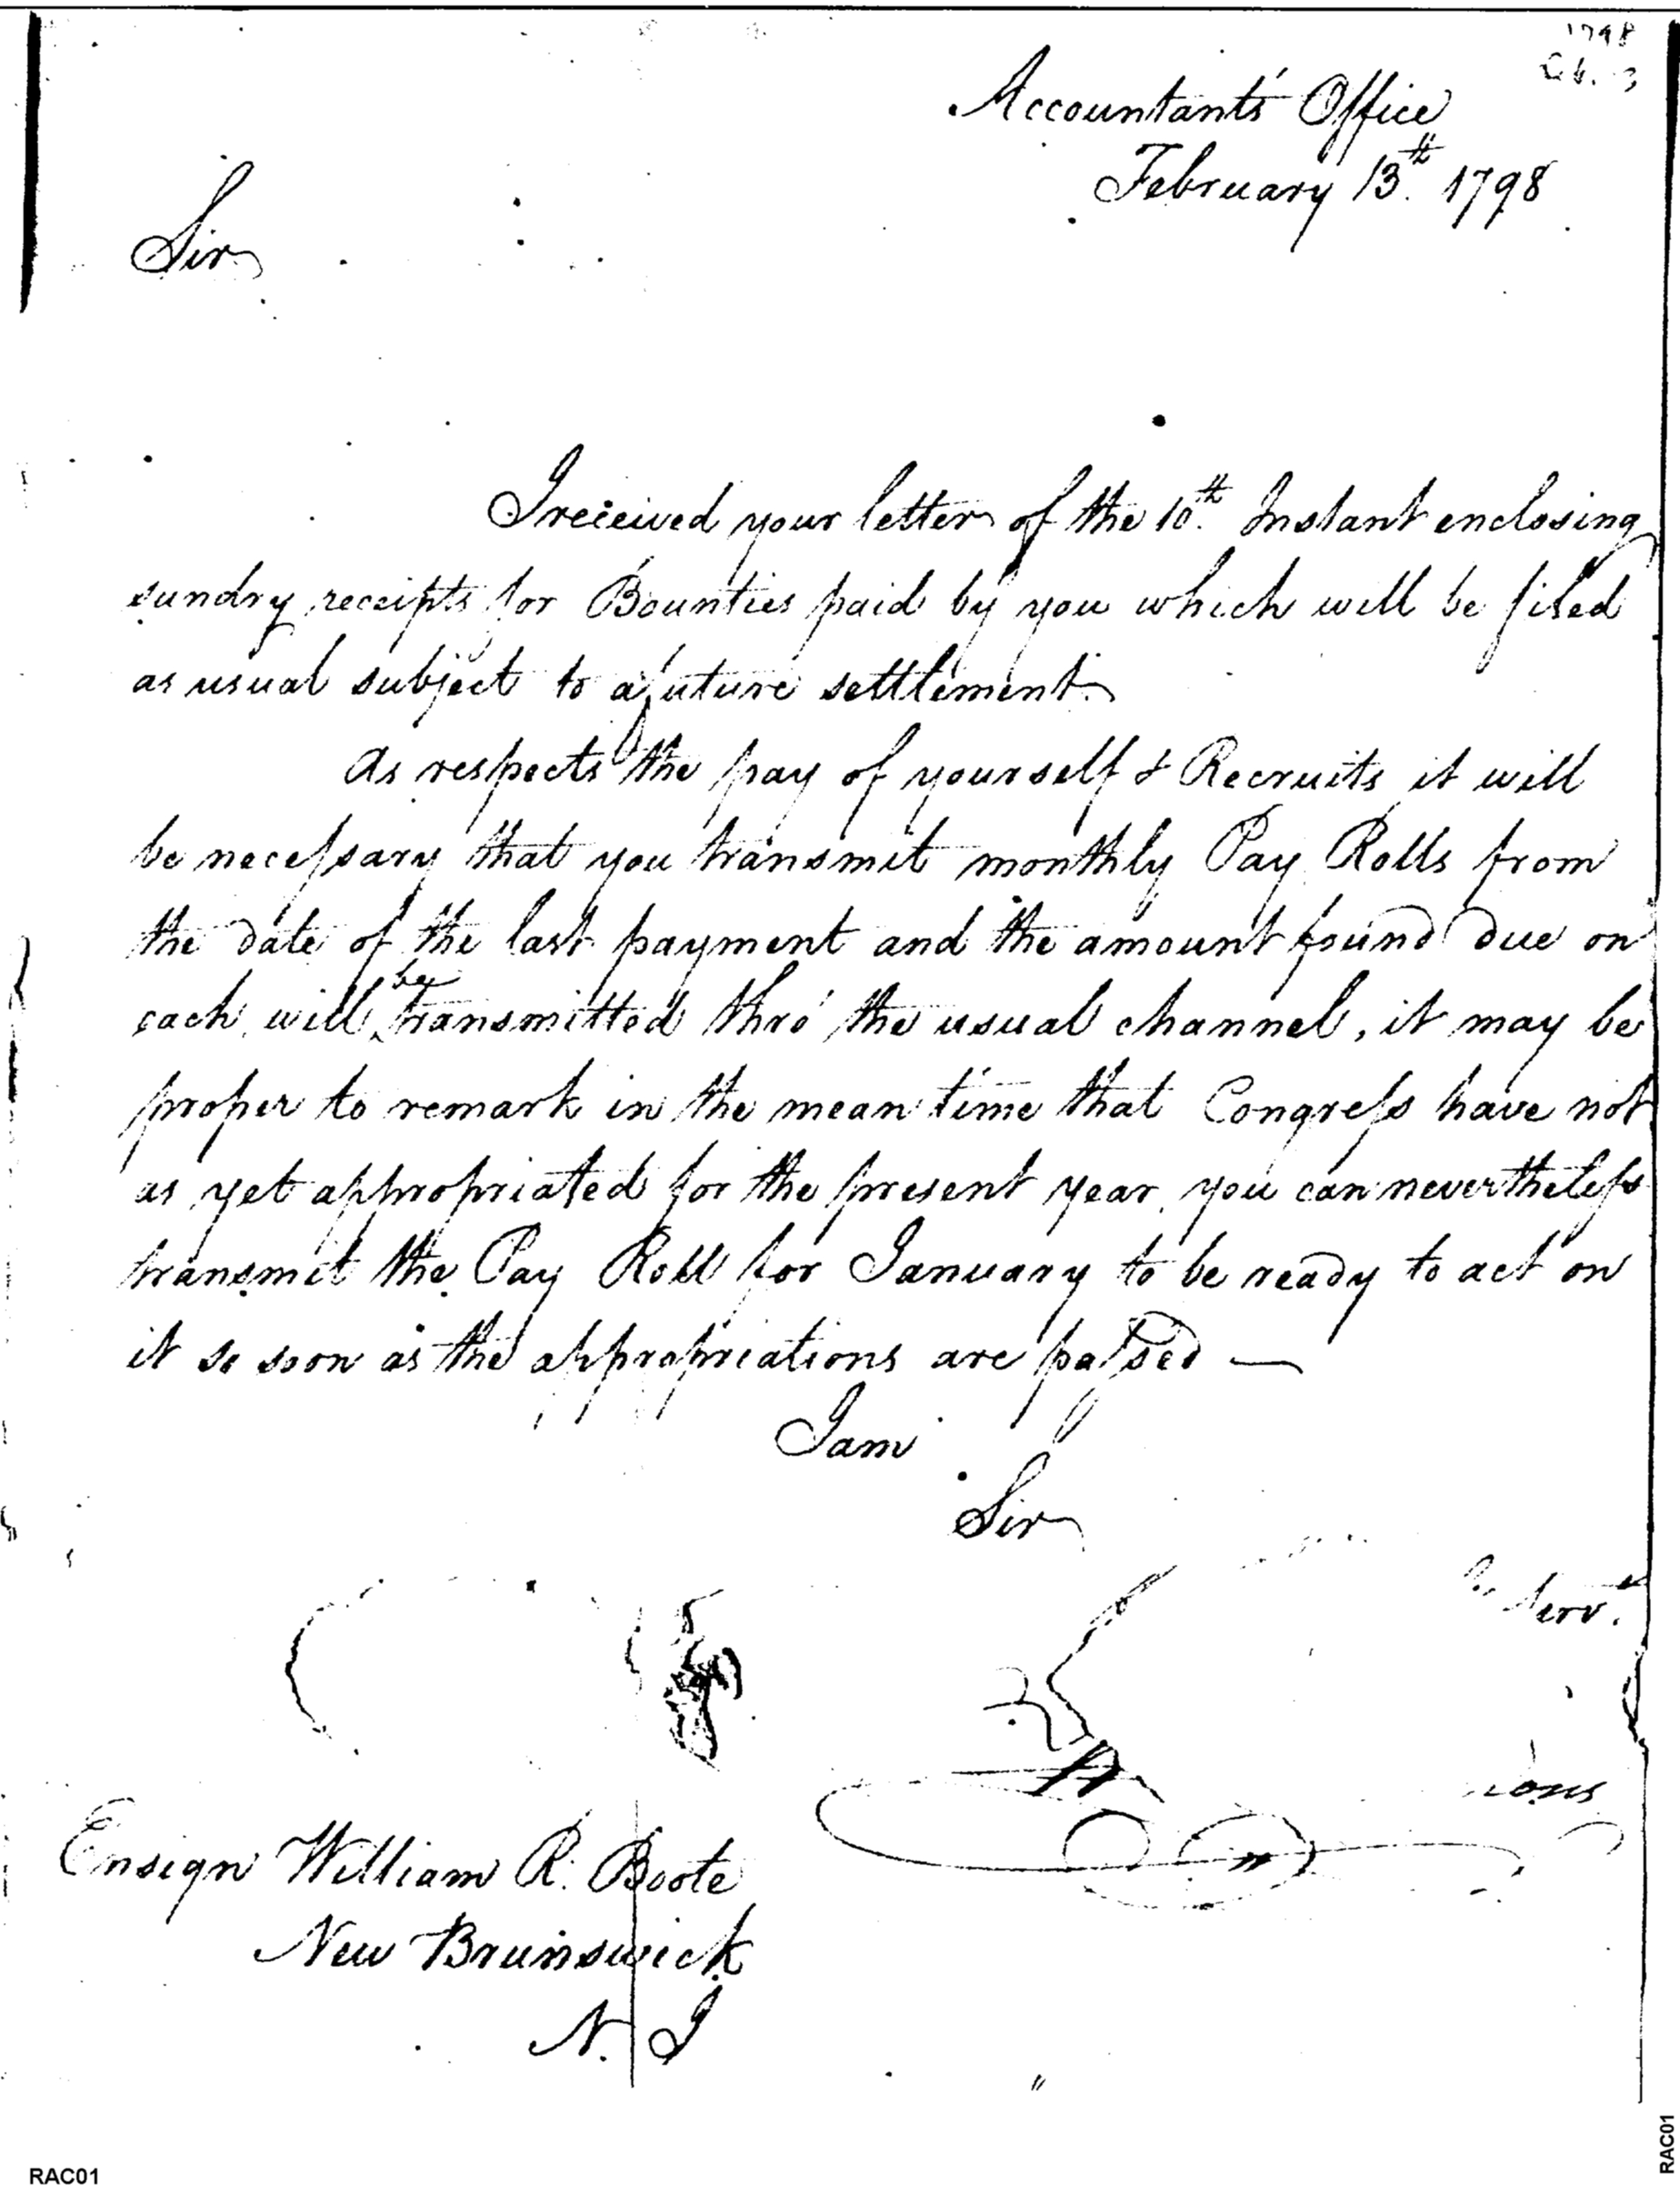 1798
Accountants Office
February 13th. 1798
Sir
I received your letter of the 10th. Instant enclosing
sundry receipts for Bounties paid by you which will be filed
as usual subject to a future settlement.
As respects the pay of yourself & Recruits it will
be necessary that you transmit monthly Pay Rolls from
the date of the last payment and the amount found due on
each will be transmitted thro' the usual channel, it may be
proper to remark in the mean time that Congress have not
as yet appropriated for the present year, you can nevertheless
transmit the Pay Roll for January to be ready to act on
it so soon as the appropriations are passed —
I am
Sir
Servt.
Ensign William R. Boote
New Brunswick
N. J
RAC01
RAC01